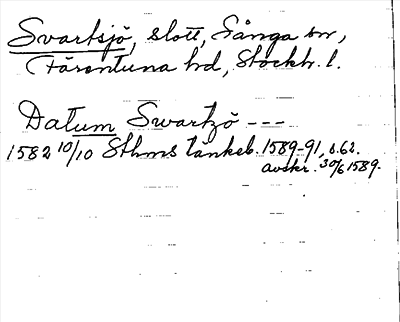 Svartsjö, slott, Sånga sn,
Färentuna hd, Stockh. l.
Datum Swartzö ---
1582 10/10 Sthms tänkeb. 1589-91, s. 62.
avskr. 30/6 1589.